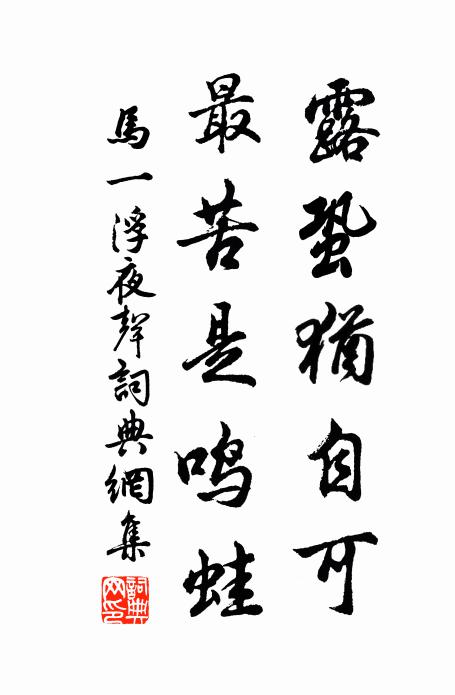 露蛩猶自可
最苦是鸣蛙
馬一浮夜聲詞典網集
詞典
网印